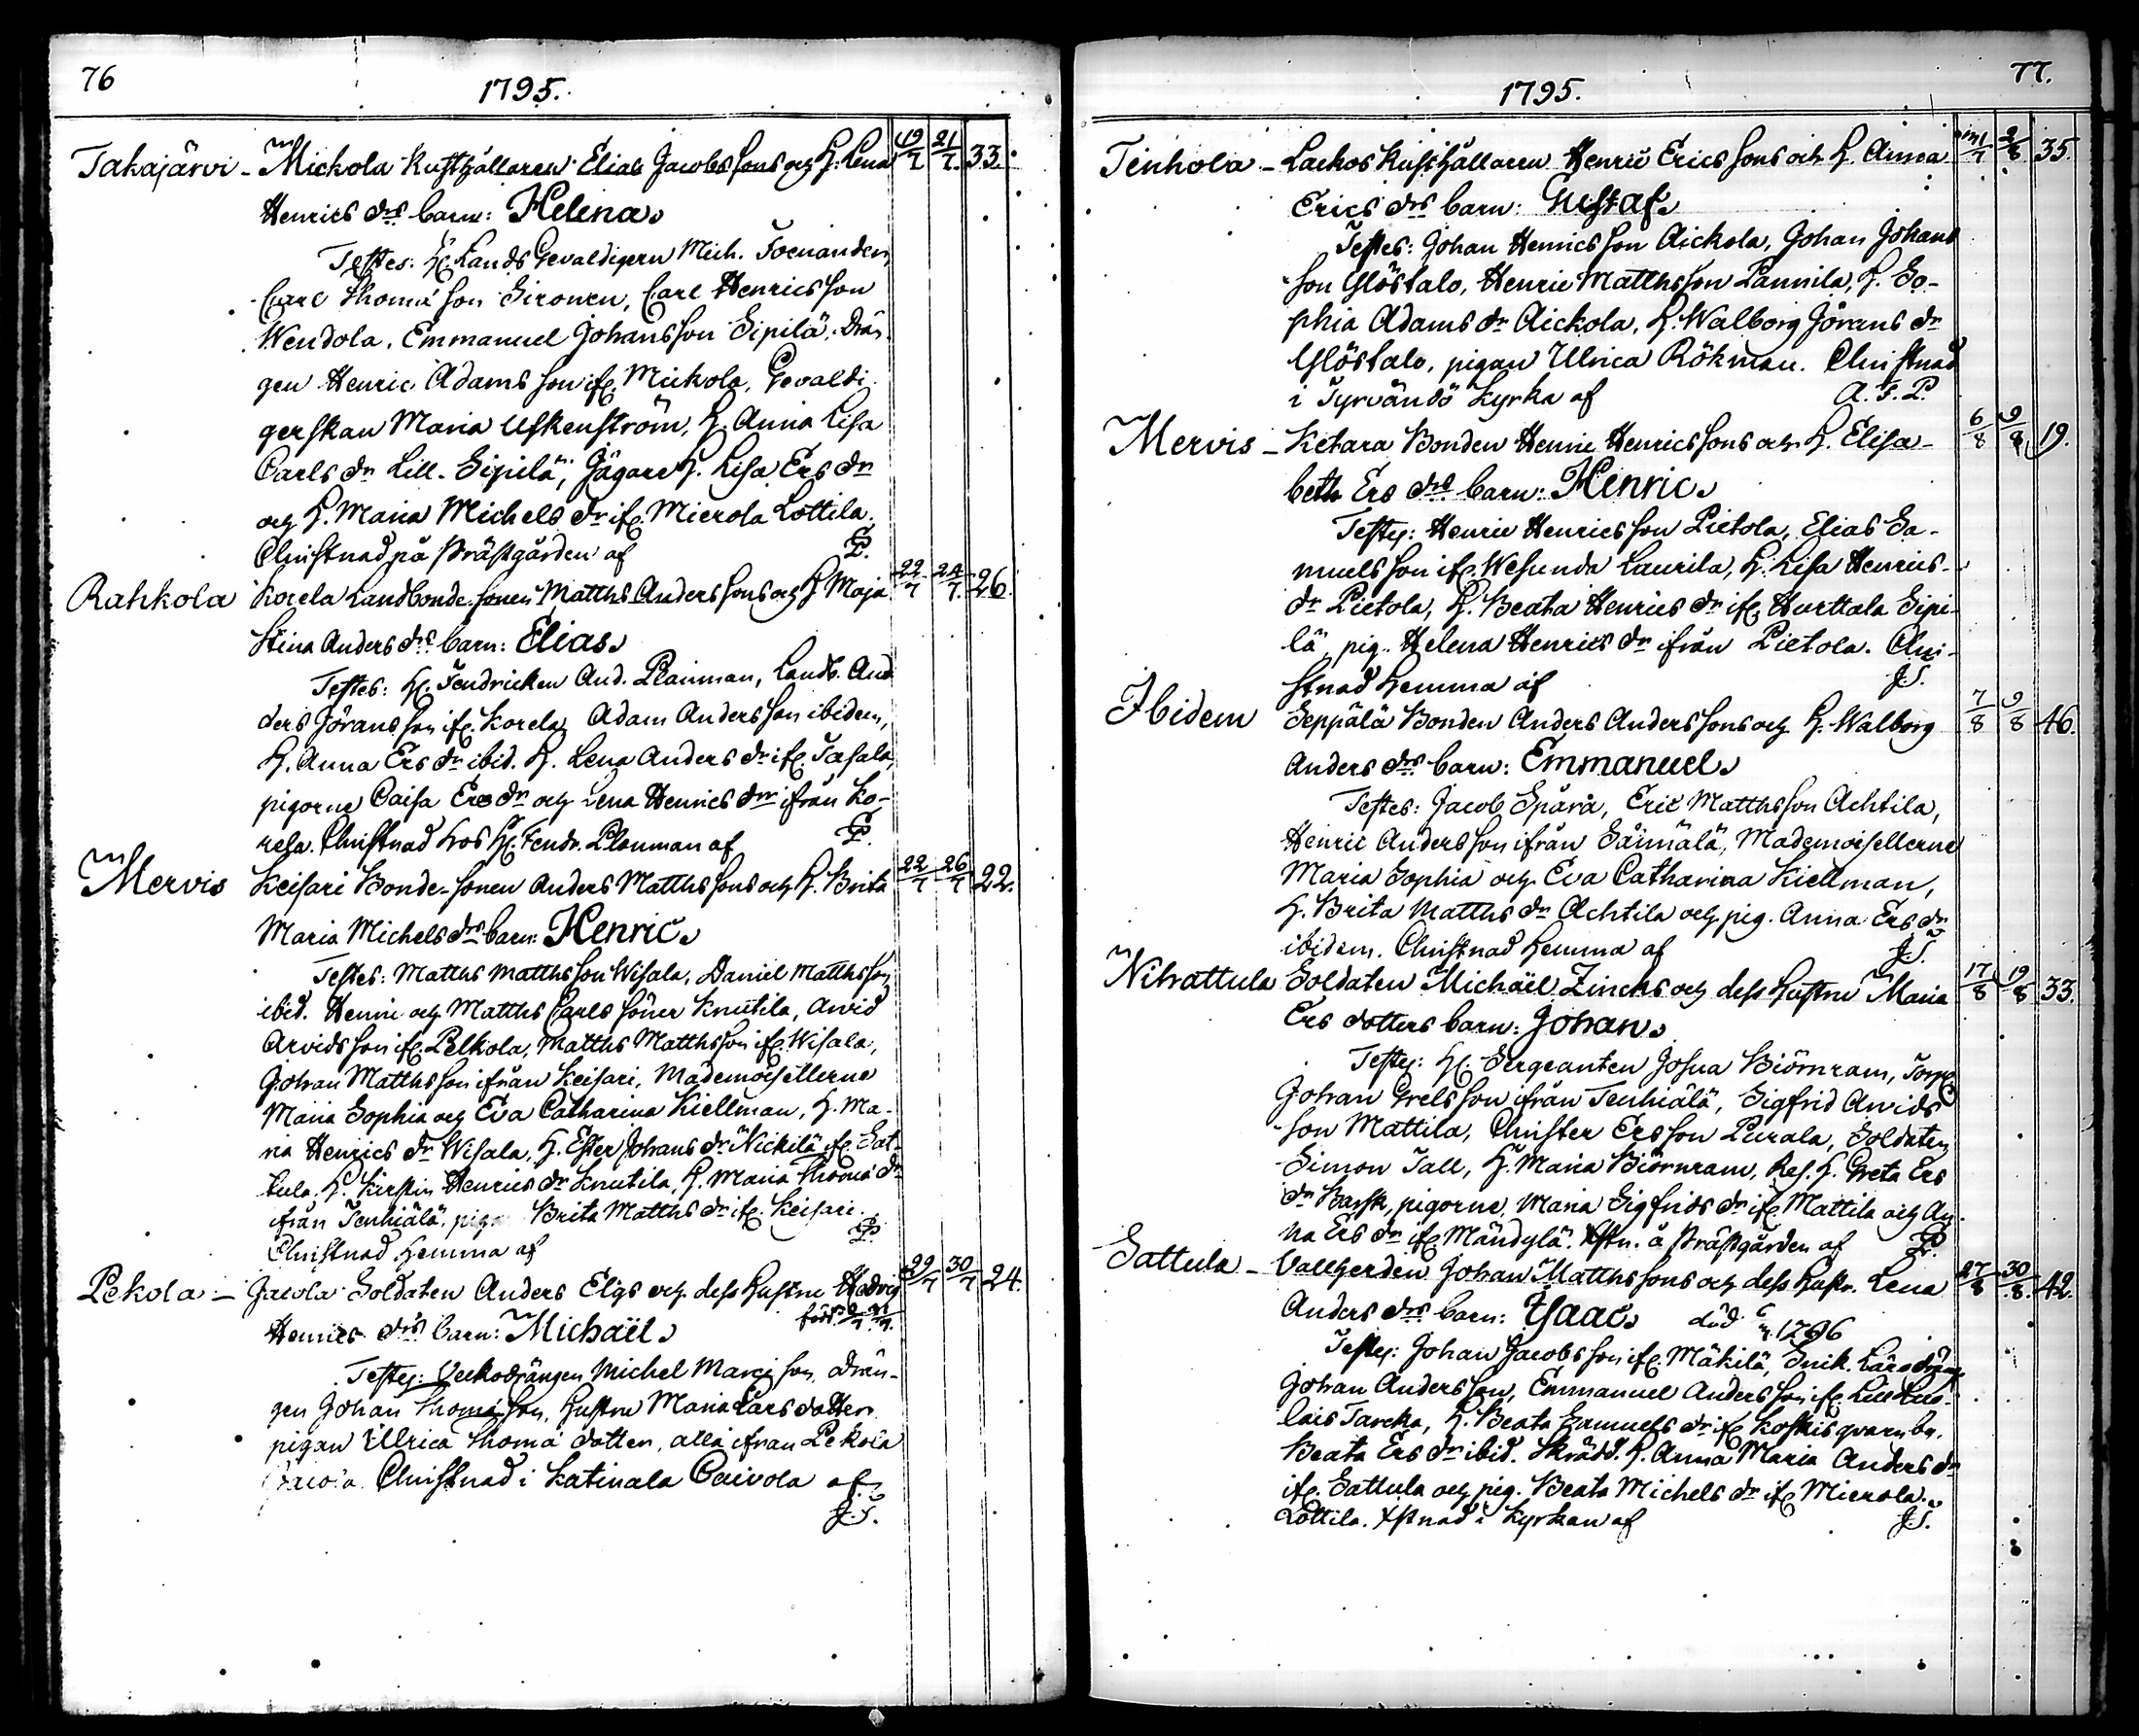 76
1795.
Takajärvi - Mickola Rusthållaren Elias Jacobssons och H. Lena 19/7 21/7. 33.
Henrics drs barn: Helena.
Testes: H. Lands Gevaldigern Mich. Toenanden,
Carl Thomæ son Sironen, Carl Henricsson
Wendola, Emmanuel Johansson Sipilä, Drän-
gen Henric Adamsson ifr. Mickola, Gevaldi-
gerskan Maria Uskenström, H. Anna Lisa
Carls dr Lill-Sipilä, Jägare H. Lisa Ers dr
och H. Maria Michels dr ifr. Mierola Lottila.
Christnad på Prästgården af P.
Rahkola Korela Landbonde-sonen Matths Anderssons och H. Maja 22/7 24/7. 26.
Stina Anders drs barn: Elias.
Testes: H. Fendricken And. Planman, Landb. An-
ders Jöransson ifr. Korela, Adam Andersson ibidem,
H. Anna Ers dr ibid. H. Lena Anders dr ifr. Tasala,
pigorne Caisa Ers dr och Lena Henrics dr ifrån Ko-
rela. Christnad hos H. Fendr. Planman af P.
Mervis Keisari Bonde-sonen Anders Matthssons och H. Brita 22/7 26/7 22.
Maria Michels drs barn: Henric.
Testes: Matths Matthsson Wisala, Daniel Matthsson
ibid. Henric och Matths Carls söner Knutila, Arvid
Arvidsson ifr. Pelkola, Matths Matthsson ifr. Wisala,
Johan Matthsson ifrån Keisari, Mademoisellerne
Maria Sophia och Eva Catharina Kiellman, H. Ma-
ria Henrics dr Wisala, H. Ester Johans dr Nickilä ifr. Sat-
tula, H. Kirstin Henrics dr Knutila, H. Maria Thomæ dr
ifrån Tenhiälä, pig. Brita Matths dr ifr. Keisari.
Christnad hemma af P.
Pekola - Jacola Soldaten Anders Elgs och dess hustru Hedvig 29/7 30/7 24.
Henrics drs barn: Michaël.
Testes: Veckodrängen Michel son, drän-
gen Johan Thomæ son, hustru Maria Lars dotter
pigan Ulrica Thomæ dotter, alla ifrån Pekola
Jacola. Christnad i Katinala Caivola af
J.S.
77.
1795.
Tenhola - Lackos Rusthållaren Henric Ericssons och H. Anna 2/8 35.
Erics drs barn: Gustaf.
Testes: Johan Henricsson Aickola, Johan Johans
son Ylöstalo, Henric Matthsson Pannila, H. So-
phia Adams dr Aickola, H. Walborg Jörans dr
Ylöstalo, pigan Ulrica Rökman. Christnad
i Tyrväntö Kyrka af A.F.P.
Mervis - Ketara Bonden Henric Henricssons och H. Elisa- 6/8 9/8 19.
beth Ers drs barn: Henric.
Testes: Henric Henricsson Pietola, Elias Sa-
muelsson ifr. Wesunda Laurila, H. Lisa Henrics-
dr Pietola, H. Beata Henrics dr ifr. Hurttala Sipi-
lä, pig. Helena Henrics dr ifrån Pietola. Chri-
stnad hemma af J.S.
Ibidem Seppälä Bonden Anders Anderssons och H. Walborg 7/8 9/8 46.
Anders drs barn: Emmanuel.
Testes: Jacob Spårå, Eric Matthsson Achtila,
Henric Andersson ifrån Säimälä, Mademoisellerne
Maria Sophia och Eva Catharina Kiellman,
H. Brita Matths dr Achtila och pig. Anna Ers dr
ibidem. Christnad hemma af J.S.
Nihattula Soldaten Michaël Zincks och dess hustru Maria 17/8 19/8 33.
Ers dotters barn: Johan.
Testes: H. Sergeanten Josua Biörnram, Torp.
Johan Grelsson ifrån Tenhiälä, Sigfrid Arvids
son Mattila, Christer Ersson Purala, Soldaten
Simon Tall, H. Maria Biörnram, Res. H. Greta Ers
dr Barsk, pigorne, Maria Sigfrids dr ifr. Mattila och An-
na Ers dr ifr. Mändylä. Xstn. å Prästgården af P.
Sattula - Vallherden Johan Matthssons och dess hustr. Lena 27/8 30/8. 42.
Anders drs barn: Ysaac. död 1796
Testes: Johan Jacobsson ifr. Mäkilä, Snik. Läredräng
Johan Andersson, Emmanuel Andersson ifr.
lais Tarcka, H. Beata Samuels dr ifr. Koskis qvarnby,
Beata Ers dr ibid. Skrädd. H. Anna Maria Anders dr
ifr. Sattula och pig. Beata Michels dr ifr. Mierola
Lottila. Xstnad i Kyrkan af J.S.